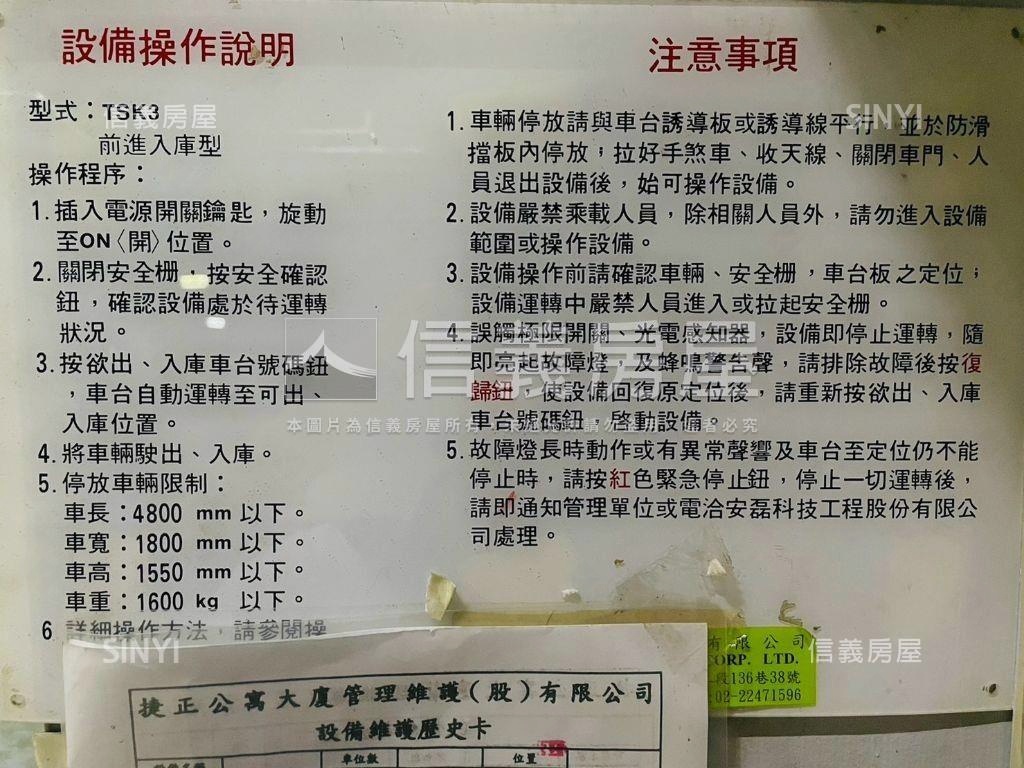 設備操作說明
型式：TSK3
前進入庫型
操作程序：
1. 插入電源開關鑰匙，旋動
至ON〈開〉位置。
2. 關閉安全柵，按安全確認
鈕，確認設備處於待運轉
狀況。
3. 按欲出、入庫車台號碼鈕
，車台自動運轉至可出、
入庫位置。
4. 將車輛駛出、入庫。
5. 停放車輛限制：
車長：4800 mm 以下。
車寬：1800 mm 以下。
車高：1550 mm 以下。
車重：1600 kg 以下。
6 詳細操作方法，請參閱操
注意事項
1. 車輛停放請與車台誘導板或誘導線平行 並於防滑
擋板內停放；拉好手煞車、收天線、關閉車門、人
員退出設備後，始可操作設備。
2. 設備嚴禁乘載人員，除相關人員外，請勿進入設備
範圍或操作設備。
3. 設備操作前請確認車輛、安全柵，車台板之定位；
設備運轉中嚴禁人員進入或拉起安全柵。
4. 誤觸極限開關、光電感知器，設備即停止運轉，隨
即亮起故障燈，及蜂鳴警告聲，請排除故障後按復
歸鈕，使設備回復原定位後，請重新按欲出、入庫
車台號碼鈕，啓動設備。
5. 故障燈長時動作或有異常聲響及車台至定位仍不能
停止時，請按紅色緊急停止鈕，停止一切運轉後，
請即通知管理單位或電洽安磊科技工程股份有限公
司處理。
信義房屋
SINYI
信義房屋
本圖片為信義房屋所有
SINYI
信義房屋
有限公司
CORP. LTD.
段136巷38號
:02-22471596
捷正公寓大廈管理維護(股)有限公司
設備維護歷史卡
單位數
位置